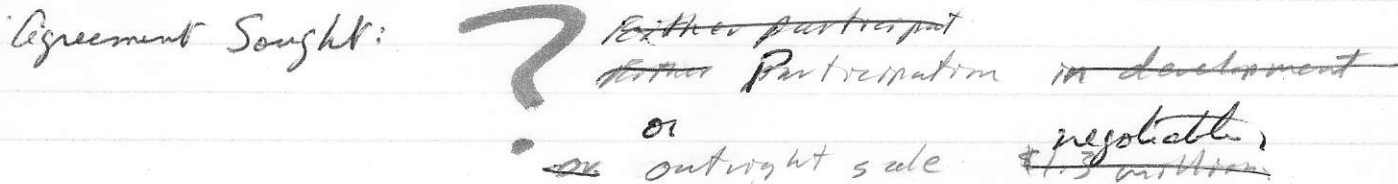 Agreement Sought: ? Either participat
Either Participation in development
or negotiable,
or outright sale $1.3 million